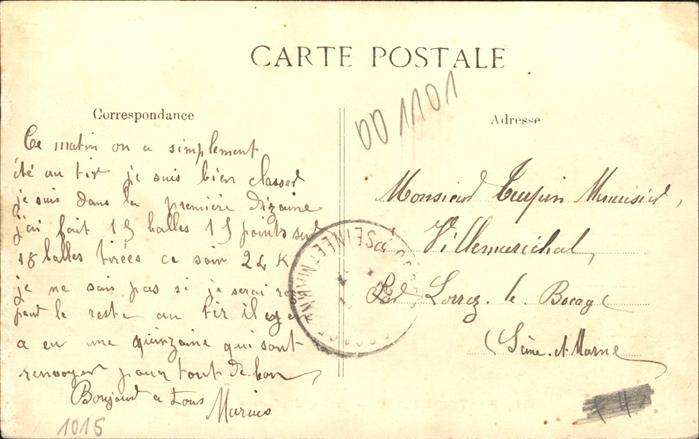 CARTE POSTALE
Correspondance
Ce matin on a simplement
été au tir je suis bien classed
je suis dans la première dizaine
j'ai fait 15 balles 15 points sur
18 balles tirées ce soir 24 K
je ne sais pas si je serai
pour le reste au tir il y en
a eu une quinzaine qui sont
renvoyer pour tout de bon
Bonjourd a tous
Marius
1015
001101
Adresse
Monsieur Turpin Maurisier,
à Villemaréchal,
Par Lorrez le Bocage
(Seine et Marne
SEINE-ET-MARNE